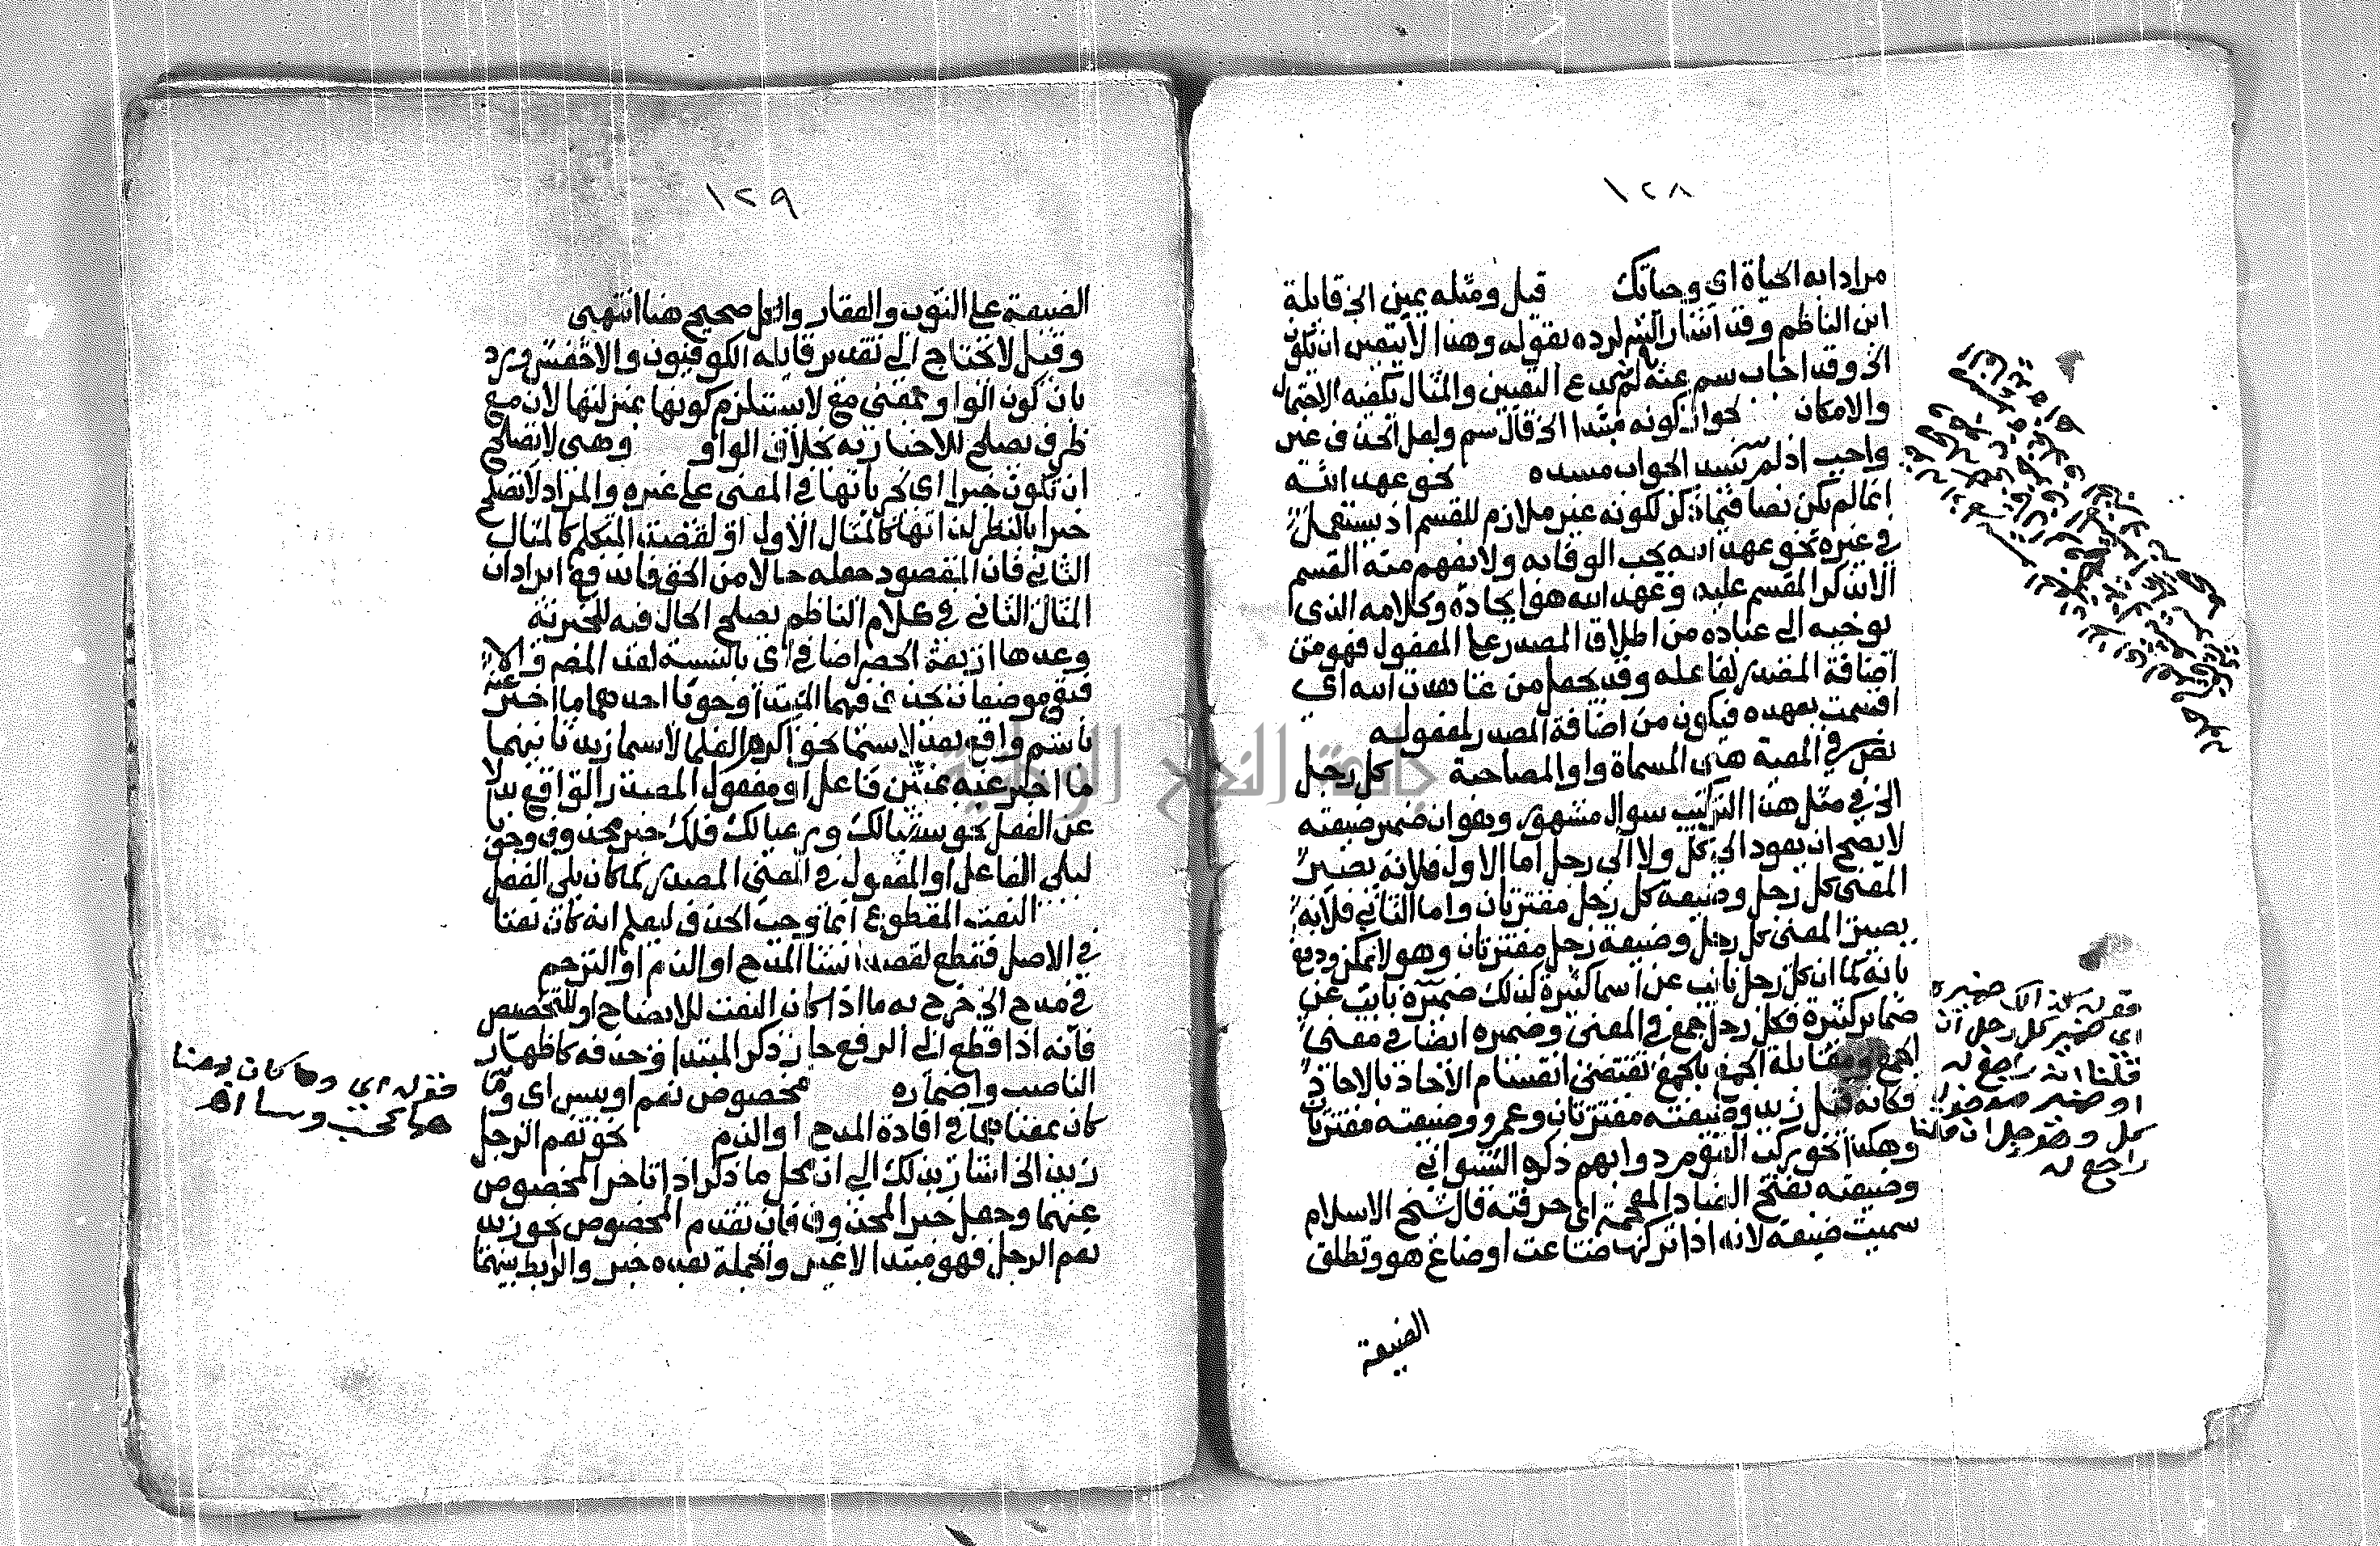 ١٢٨
مرادا به الحياة اى وحياتك قيل ومثله يمين الخ قايله
ابن الناظم وقد اشار الش لرده بقوله وهذا لا يتعين ان تكون
الخ وقد اجاب سم عنه لم يدع التعين والمثال يكفيه الاحتمال
والامكان جواز كونه مبتدا الخ قال سم ولعل الحذف غير
واجب اذ لم يسد الجواب مسده نحو عهد الله
انما لم يكن نصا فيما ذكر لكونه غير ملازم للقسم اذ يستعمل
في غيره نحو عهد الله يجب الوفا به ولا يفهم منه القسم
الا بذكر المقسم عليه وعهد الله هو ايجاده وكلامه الذى
يوجبه الى عباده من اطلاق المصدر على المفعول فهو من
اضافة المصدر لفاعله وقد يجعل من عاهدت الله اى
اقسمت بعهده فيكون من اضافة المصدر لمفعوله
نص في المعية هى المسماة واو المصاحبة كل رجل
الخ في مثل هذا التركيب سوال مشهور وهو ان ضمير ضيعته
لا يصح ان يعود الى كل ولا الى رجل اما الاول فلانه يصير
المعنى كل رجل وضيعة كل رجل مقترنان واما الثاني فلانه
يصير المعنى كل رجل وضيعة رجل مقترنان وهو لا يمكن ودفع
بانه كما ان كل رجل نايب عن اسما كثيرة كذلك ضميره نايب عن
ضماير كثيرة فكل رجل جمع في المعنى وضميره ايضا في معنى
الجمع ومقابلة الجمع بالجمع تقتضى انقسام الاحاد بالاحاد
فكانه قيل زيد وضيعته مقترنان وعمرو وضيعته مقترنان
وهكذا نحو ركب القوم دوابهم ذكره الشنوانى
وضيعته بفتح الضاد المعجمة اى حرفته قال شيخ الاسلام
سميت ضيعة لانه اذا تركها ضاعت او ضاع هو وتطلق
الضيعة
قوله كذلك ضميره
اى ضمير كل رجل ان
قلنا انه راجع له
راجع له
١٢٩
الضيعة على الثوب والعقار والكل صحيح هنا انتهى
وقيل لا يحتاج الى تقدير قايله الكوفيون والاخفش ورد
بان كون الواو بمعنى مع لا يستلزم كونها بمنزلتها لان مع
ظرف يصلح للاخبار به بخلاف الواو وهى لا تصلح
ان تكون خبرا اى لجريانها في المعنى على غيره والمراد لا تصلح
خبرا بالنظر لذاتها كالمثال الاول او لقصد المتكلم كالمثال
الثاني فان المقصود جعله حالا من الحق فاندفع ايراد ان
المثال الثاني في كلام الناظم يصلح الحال فيه للخبرية
وعدها اربعة الحصر اضافي اى بالنسبة لهذا المصرف والا
فبقى موضعان تحذف فيهما المبتدا وجوبا احدهما ما اخبر عنه
باسم واقع بعد لاسيما نحو اكرم العلما لاسيما زيد ثانيهما
ما اخبر عنه بمبين فاعل او مفعول المصدر الواقع بدلا
عن الفعل نحو سقيا لك ورعيا لك فلك خبر محذوف وجوبا
ليلى الفاعل او المفعول في المعنى المصدر كما كان يلى الفعل
النعت المقطوع انما وجب الحذف ليعلم انه كان نعتا
في الاصل فقطع لقصد انشا المدح او الذم او الترحم
في مدح الخ خرج به ما اذا كان النعت للايضاح او للتخصيص
فانه اذا قطع الى الرفع جاز ذكر المبتدا وحذفه كاظهار
الناصب واضماره مخصوص نعم او بيس اى وما
كان بمعناهما في افادة المدح او الذم نحو نعم الرجل
زيد الخ اشار بذلك الى ان محل ما ذكر اذا تاخر المخصوص
عنهما وجعل خبر المحذوف فان تقدم المخصوص نحو زيد
نعم الرجل فهو مبتدا لا غير والجملة بعده خبر والرابط بينهما
قوله اى وما كان بمعنا
هما كحب وسا اﻫ